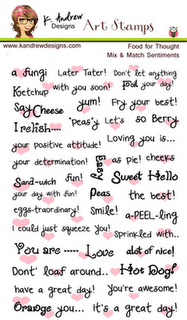 K. Andrew Designs
Art Stamps
www.kandrewdesigns.com
Food for Thought
Mix & Match Sentiments
a fungi Later Tater! Don't let anything
Ketchup with you soon! your day!
Say Cheese yum! Fry your best!
I relish.... 'peas'y Let's so Berry
your positive attitude! Loving you is...
your determination! Easy as pie! cheeks
Sand-wich fun! Sweet Hello
your day with fun! Peas the best!
eggs-traordinary! Smile! a-PEEL-ing
I could just squeeze You! Sprinkled with..
You are ---- Love alot of nice!
Dont' loaf around.. Hot Dog!
have a great day! You're awesome!
Orange you... it's a great day!